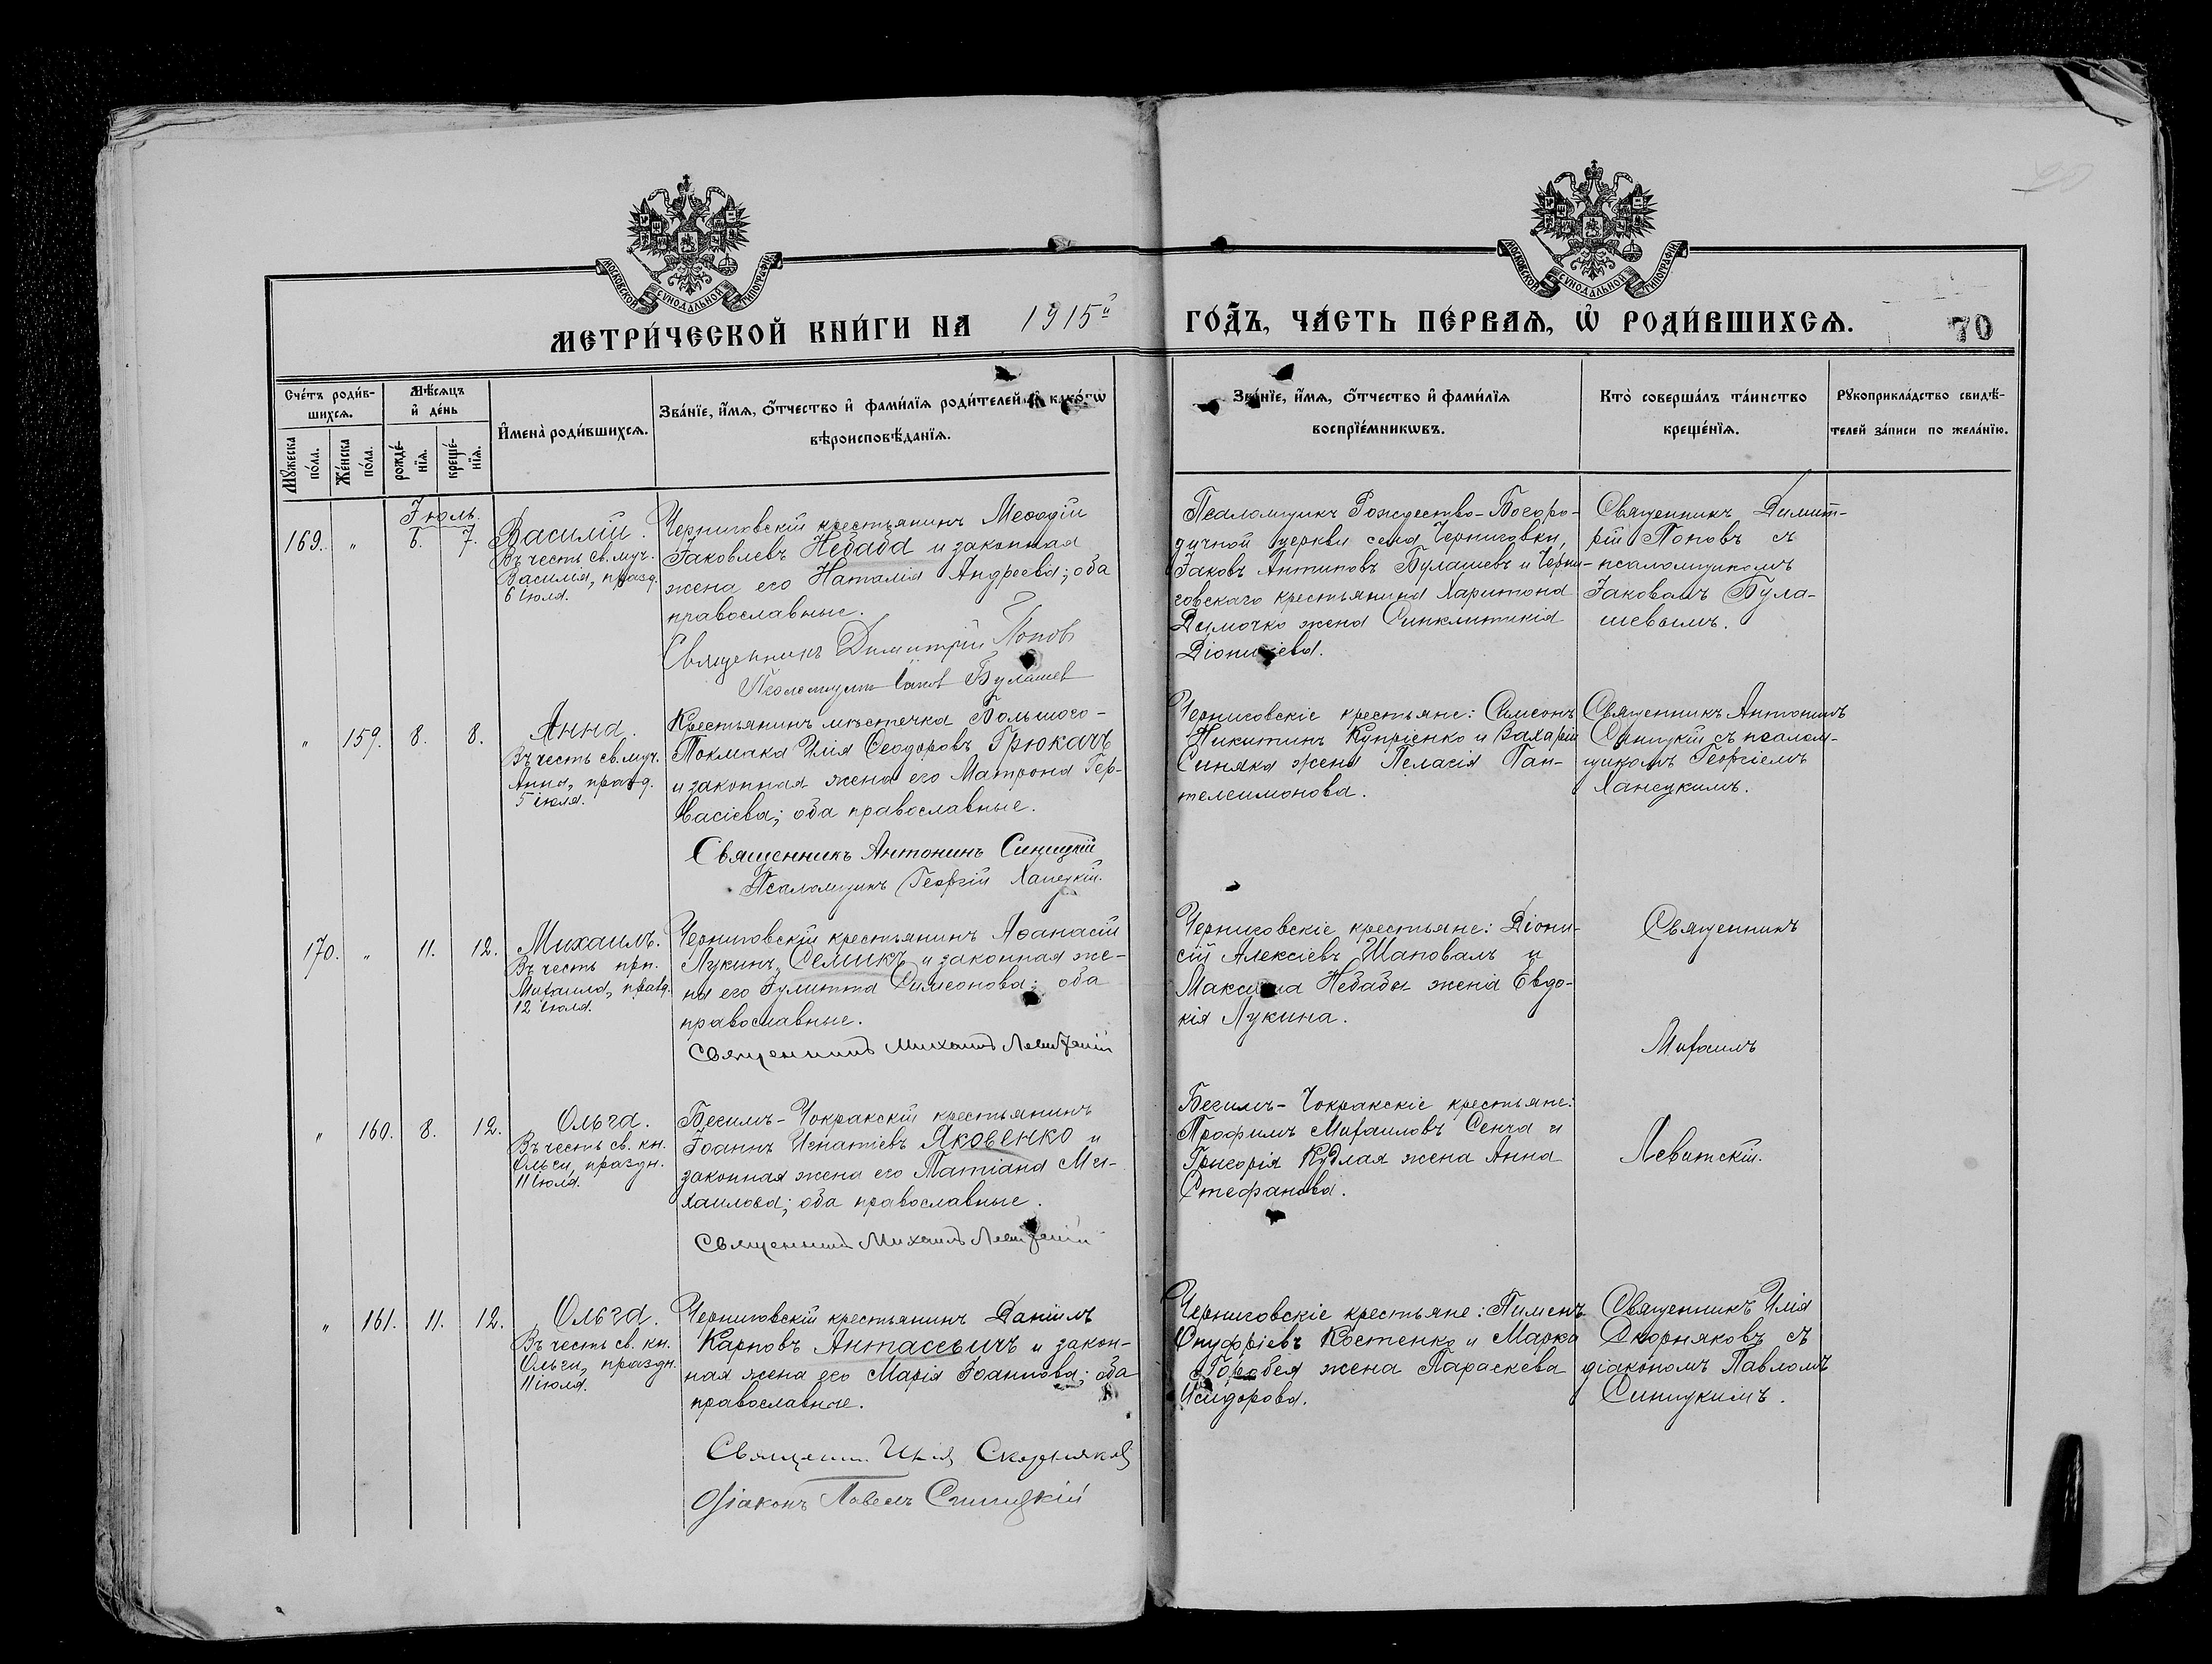 МОСКОВСКОЙ СѴНОДАЛЬНОЙ ТИПОГРАФІИ
МОСКОВСКОЙ СѴНОДАЛЬНОЙ ТИПОГРАФІИ
МЕТРИ́ЧЕСКОЙ КНИ́ГИ НА 1915й ГО́ДЪ, ЧА́СТЬ ПЕ́РВАЯ, Ѡ҆ РОДИ́ВШИХСЯ.
70
Сче́тъ роди́в-
шихся.
Мꙋ́жеска по́ла.
Же́нска по́ла.
Мѣ́сяцъ
и҆ де́нь
рожде́-
нїя.
креще́-
нїя.
И҆мена̀ роди́вшихся.
Зва́нїе, и҆́мя, ѻ҆́тчество и҆ фами́лїя роди́телей, и҆ како́гѡ
вѣроисповѣ́данїя.
Зва́нїе, и҆́мя, ѻ҆́тчество и҆ фами́лїя
воспрїе́мникѡвъ.
Кто̀ соверша́лъ та́инство
креще́нїя.
Рꙋкоприкла́дство свидѣ́-
телей за́писи по жела́нїю.
Іюль.
169. " 6. 7.
Василій.
Въ честь св. муч.
Василія, празд.
6 іюля.
Черниговскій крестьянинъ Меѳодій
Іаковлевъ Небаба и законная
жена его Наталія Андреева; оба
православные.
Священникъ Димитрій Попов
Псаломщик Іаков Булашев
Псаломщикъ Рождество-Богоро-
дичной церкви села Черниговки,
Іаковъ Антиповъ Булашевъ и Черни-
говскаго крестьянина Харитона
Дымочко жена Синклитикія
Діонисіева.
Священникъ Димит-
рій Поповъ съ
псаломщикомъ
Іаковомъ Була-
шевымъ.
" 159. 8. 8.
Анна.
Въ честь св. муч.
Анны, празд.
5 іюля.
Крестьянинъ мѣстечка Большого-
Токмака Илія Ѳеодоровъ Грюкачъ
и законная жена его Матрона Гер-
васіева; оба православные.
Священникъ Антонинъ Синицкій
Псаломщикъ Георгій Ханецкій.
Черниговскіе крестьяне: Симеонъ
Никитинъ Купріенко и Захарія
Синяка жена Пелагія Пан-
телеимонова.
Священникъ Антонинъ
Синицкій съ псалом-
щикомъ Георгіемъ
Ханецкимъ.
170. " 11. 12.
Михаилъ.
Въ честь прп.
Михаила, празд.
12 іюля.
Черниговскій крестьянинъ Аѳанасій
Лукинъ Семикъ и законная же-
на его Іулитта Симеонова; оба
православные.
Священникъ Михаилъ Левитскій
Черниговскіе крестьяне: Діони-
сій Алексіевъ Шаповалъ и
Максима Небабы жена Евдо-
кія Лукина.
Священникъ
Михаилъ
Левитскій.
" 160. 8. 12.
Ольга.
Въ честь св. кн.
Ольги, праздн.
11 іюля.
Бегимъ-Чокракскій крестьянинъ
Іоаннъ Игнатіевъ Яковенко и
законная жена его Татіана Ми-
хаилова; оба православные.
Священникъ Михаилъ Левитскій
Бегимъ-Чокракскіе крестьяне:
Трофимъ Михаиловъ Сенча и
Григорія Кудлая жена Анна
Стефанова.
" 161. 11. 12.
Ольга.
Въ честь св. кн.
Ольги, праздн.
11 іюля.
Черниговскій крестьянинъ Даніилъ
Карповъ Антасевичъ и закон-
ная жена его Марія Іоаннова; оба
православные.
Священн. Илія Скорняков
Діаконъ Павелъ Синицкій
Черниговскіе крестьяне: Пименъ
Онуфріевъ Костенко и Марка
Горобея жена Параскева
Исидорова.
Священникъ Илія
Скорняковъ съ
діакономъ Павломъ
Синицкимъ.